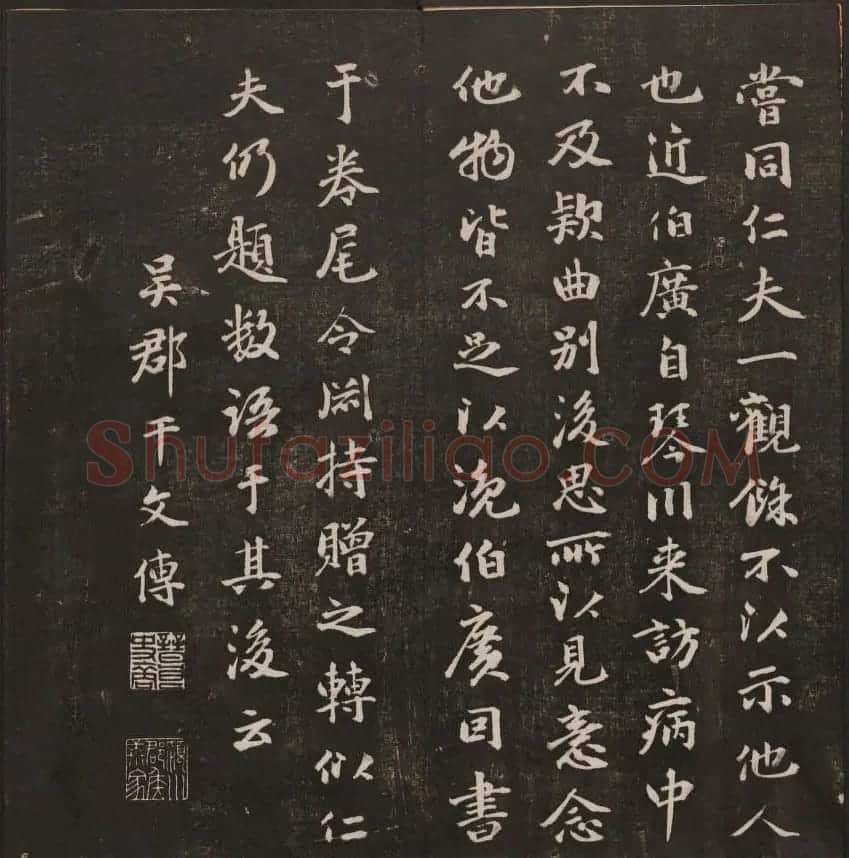 嘗同仁夫一觀餘不以示他人
也近伯廣自琴川来訪病中
不及款曲别後思所以見意念
他物皆不足以浼伯廣回書
于卷尾令冏持贈之轉似仁
夫仍題数語于其後云
吴郡干文傳
Shufaziliao.COM